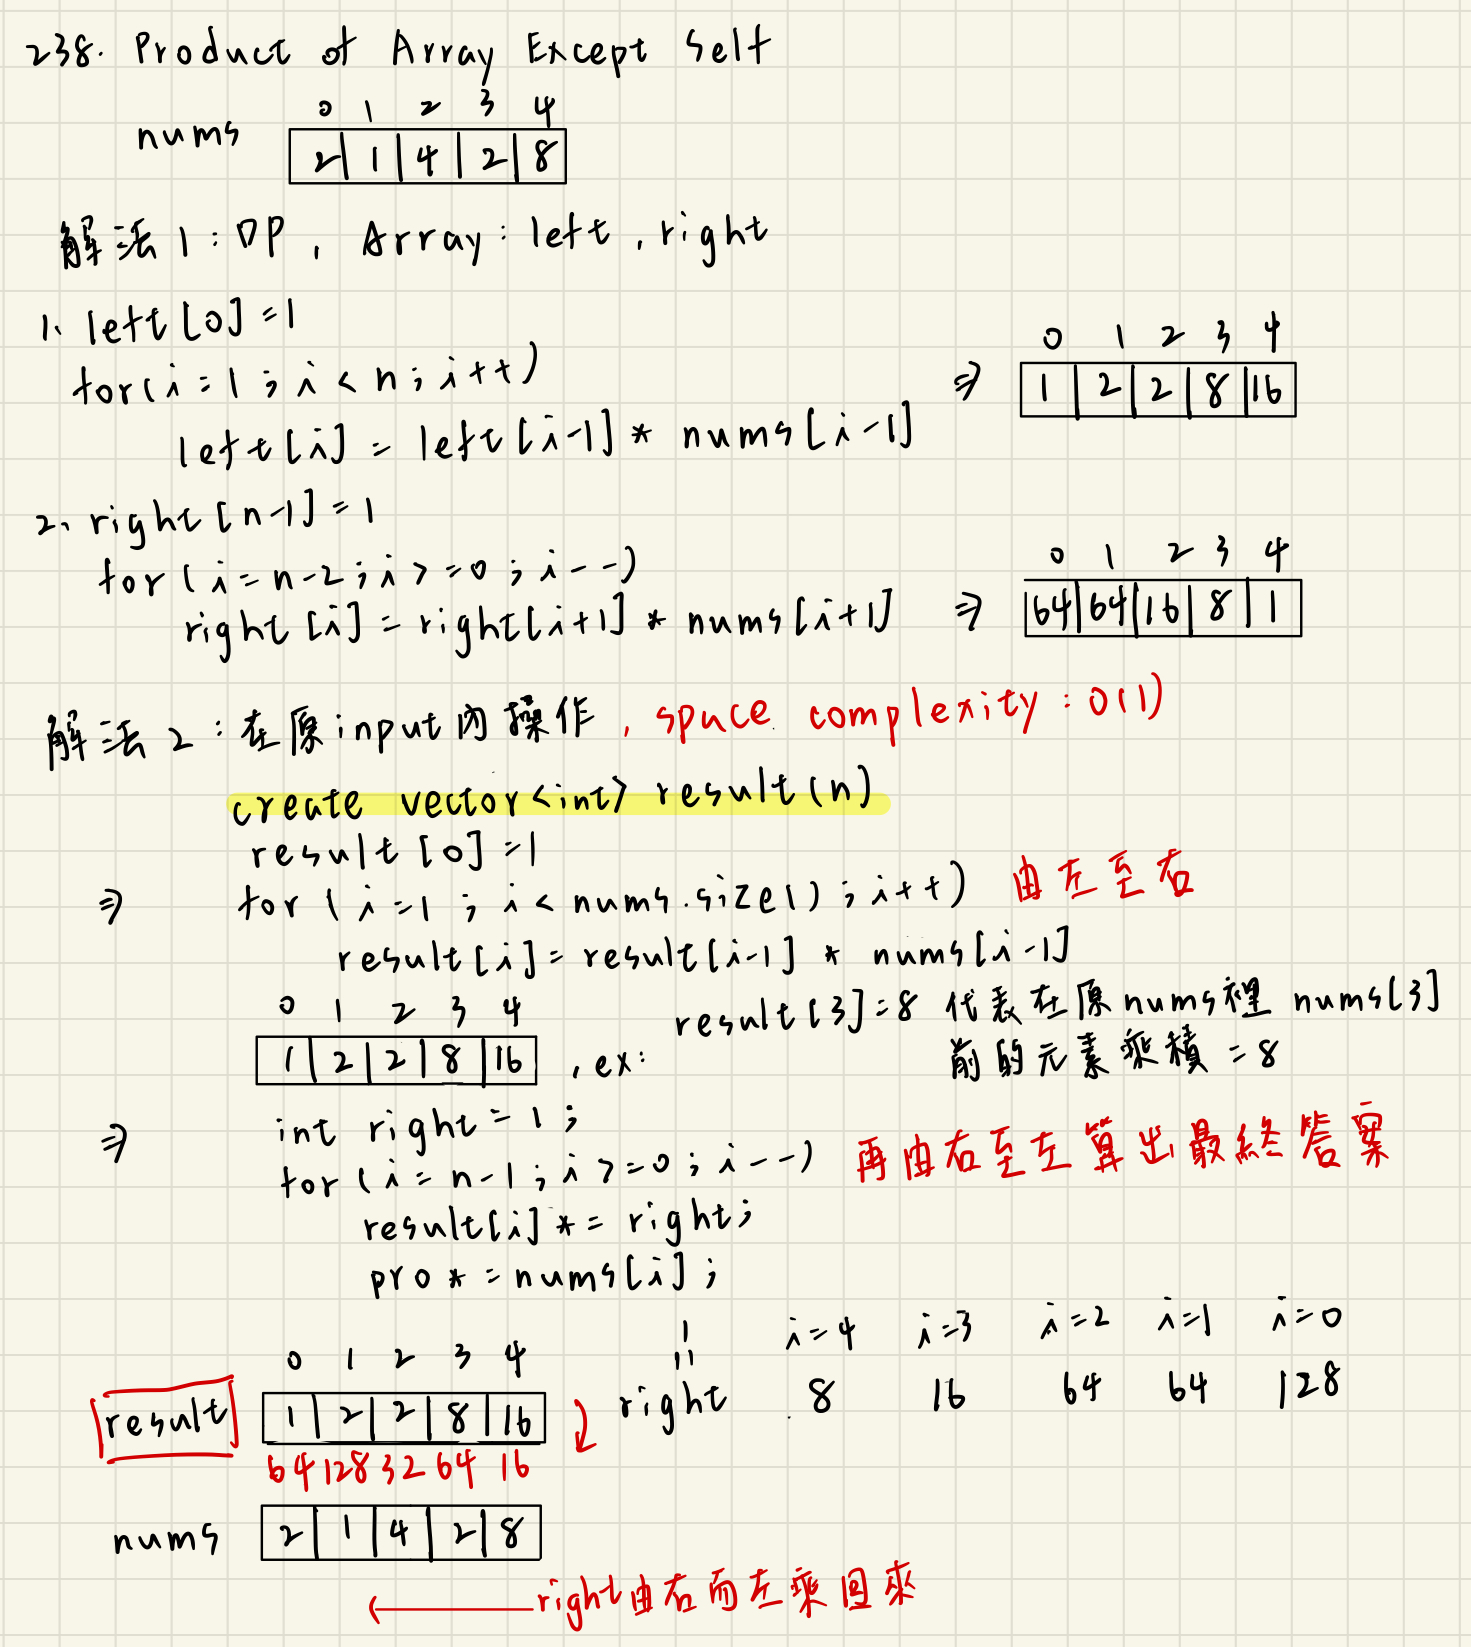 238. Product of Array Except Self
0 1 2 3 4
nums 2 1 4 2 8
解法1:DP, Array: left, right
1. left[0]=1
for(i=1;i<n;i++)
left[i]=left[i-1]*nums[i-1]
0 1 2 3 4
⇒ 1 2 2 8 16
2. right[n-1]=1
for(i=n-2;i>=0;i--)
right[i]=right[i+1]*nums[i+1]
0 1 2 3 4
⇒ 64 64 16 8 1
解法2:在原input內操作, space complexity:O(1)
create vector<int> result(n)
result[0]=1
⇒ for(i=1;i<nums.size();i++) 由左至右
result[i]=result[i-1]*nums[i-1]
0 1 2 3 4
1 2 2 8 16 , ex: result[3]=8 代表在原nums裡 nums[3]
前的元素乘積=8
⇒ int right=1;
for(i=n-1;i>=0;i--) 再由右至左算出最終答案
result[i]*=right;
pro*=nums[i];
0 1 2 3 4
result 1 2 2 8 16
64 128 32 64 16
1 i=4 i=3 i=2 i=1 i=0
=
right 8 16 64 64 128
nums 2 1 4 2 8
← right由右而左乘回來